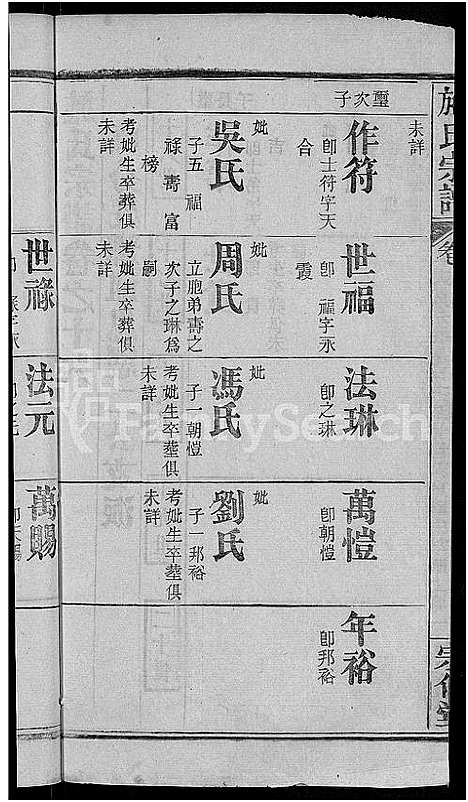 氏宗譜
卷
未詳
璽次子
作符
卽士符字天
合
妣
吳氏
子五 福
祿 壽 富
榜
考妣生卒葬俱
未詳
世福
卽 福字永
霞
妣
周氏
立胞弟壽之
次子之琳爲
嗣
考妣生卒葬俱
未詳
法琳
卽之琳
妣
馮氏
子一朝愷
考妣生卒塟俱
未詳
萬愷
卽朝愷
妣
劉氏
子一邦裕
考妣生卒塟俱
未詳
年裕
卽邦裕
世祿
法元
萬賜